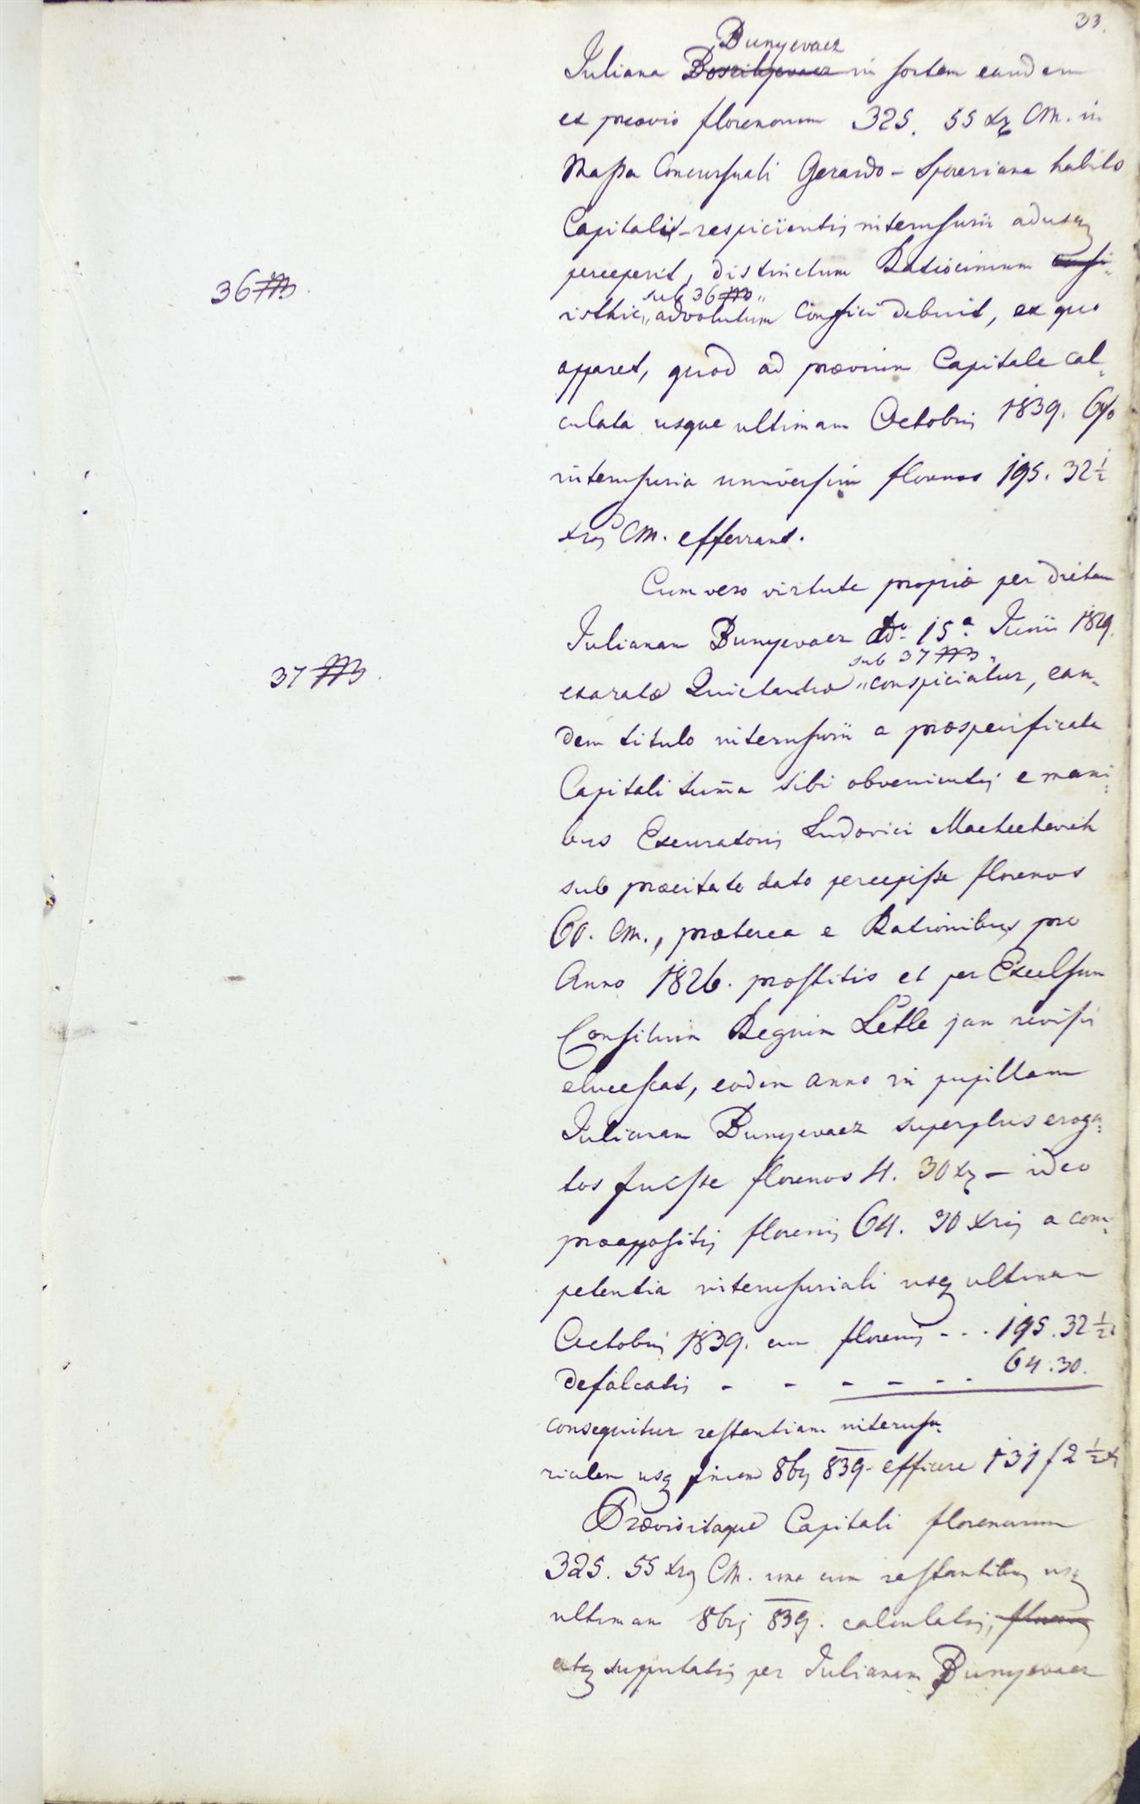 33.
Bunyevacz
Juliana Boszilyevacz in sortem eandem
ex praevio florenorum 325. 55 xr CM. in
Massa Concursuali Gerardo - Spereriana habito
Capitali respicientis interusurii adusq
perceperit, distinctum Ratiocinium
sub 36 m
36 m.
isthic advolutum confici debuit, ex quo
apparet, quod ad praevium Capitale cal-
culata usque ultimam Octobris 1839. 6%
interusuria universim florenos 195. 32 1/2
xros CM. efferrant.
Cum vero virtute propriae per dictam
Julianam Bunyevacz ddo 15a Junii 1829.
sub 37 m
37 m.
exaratae Quietantiae conspiciatur, ean-
dem titulo interusurii a praespecificata
Capitali sum̄a sibi obvenientis e mani-
bus Excuratoris Ludovici
sub praecitato dato percepisse florenos
60. CM., praeterea e Rationibus pro
Anno 1826. praestitis et per Excelsum
Consilium Regium Lttle jam revisis
elucescat, eodem anno in pupillam
Julianam Bunyevacz superplus eroga-
tos fuisse florenos 4. 30 xr - ideo
praeappositis florenis 64. 30 xris a com-
petentia interusuriali usq ultimam
Octobris 1839. cum florenis - - - 195. 32 1/2
64. 30.
defalcatis - - - - - -
consequitur restantiam interusu-
rialem usq finem 8bris 839. efficere 131 f 2 1/2 x
Praevio itaque Capitali florenorum
325. 55 xros CM. una cum restantibus usq
ultimam 8bris 839. calculatis, florenos
atq supputatis per Julianam Bunyevacz